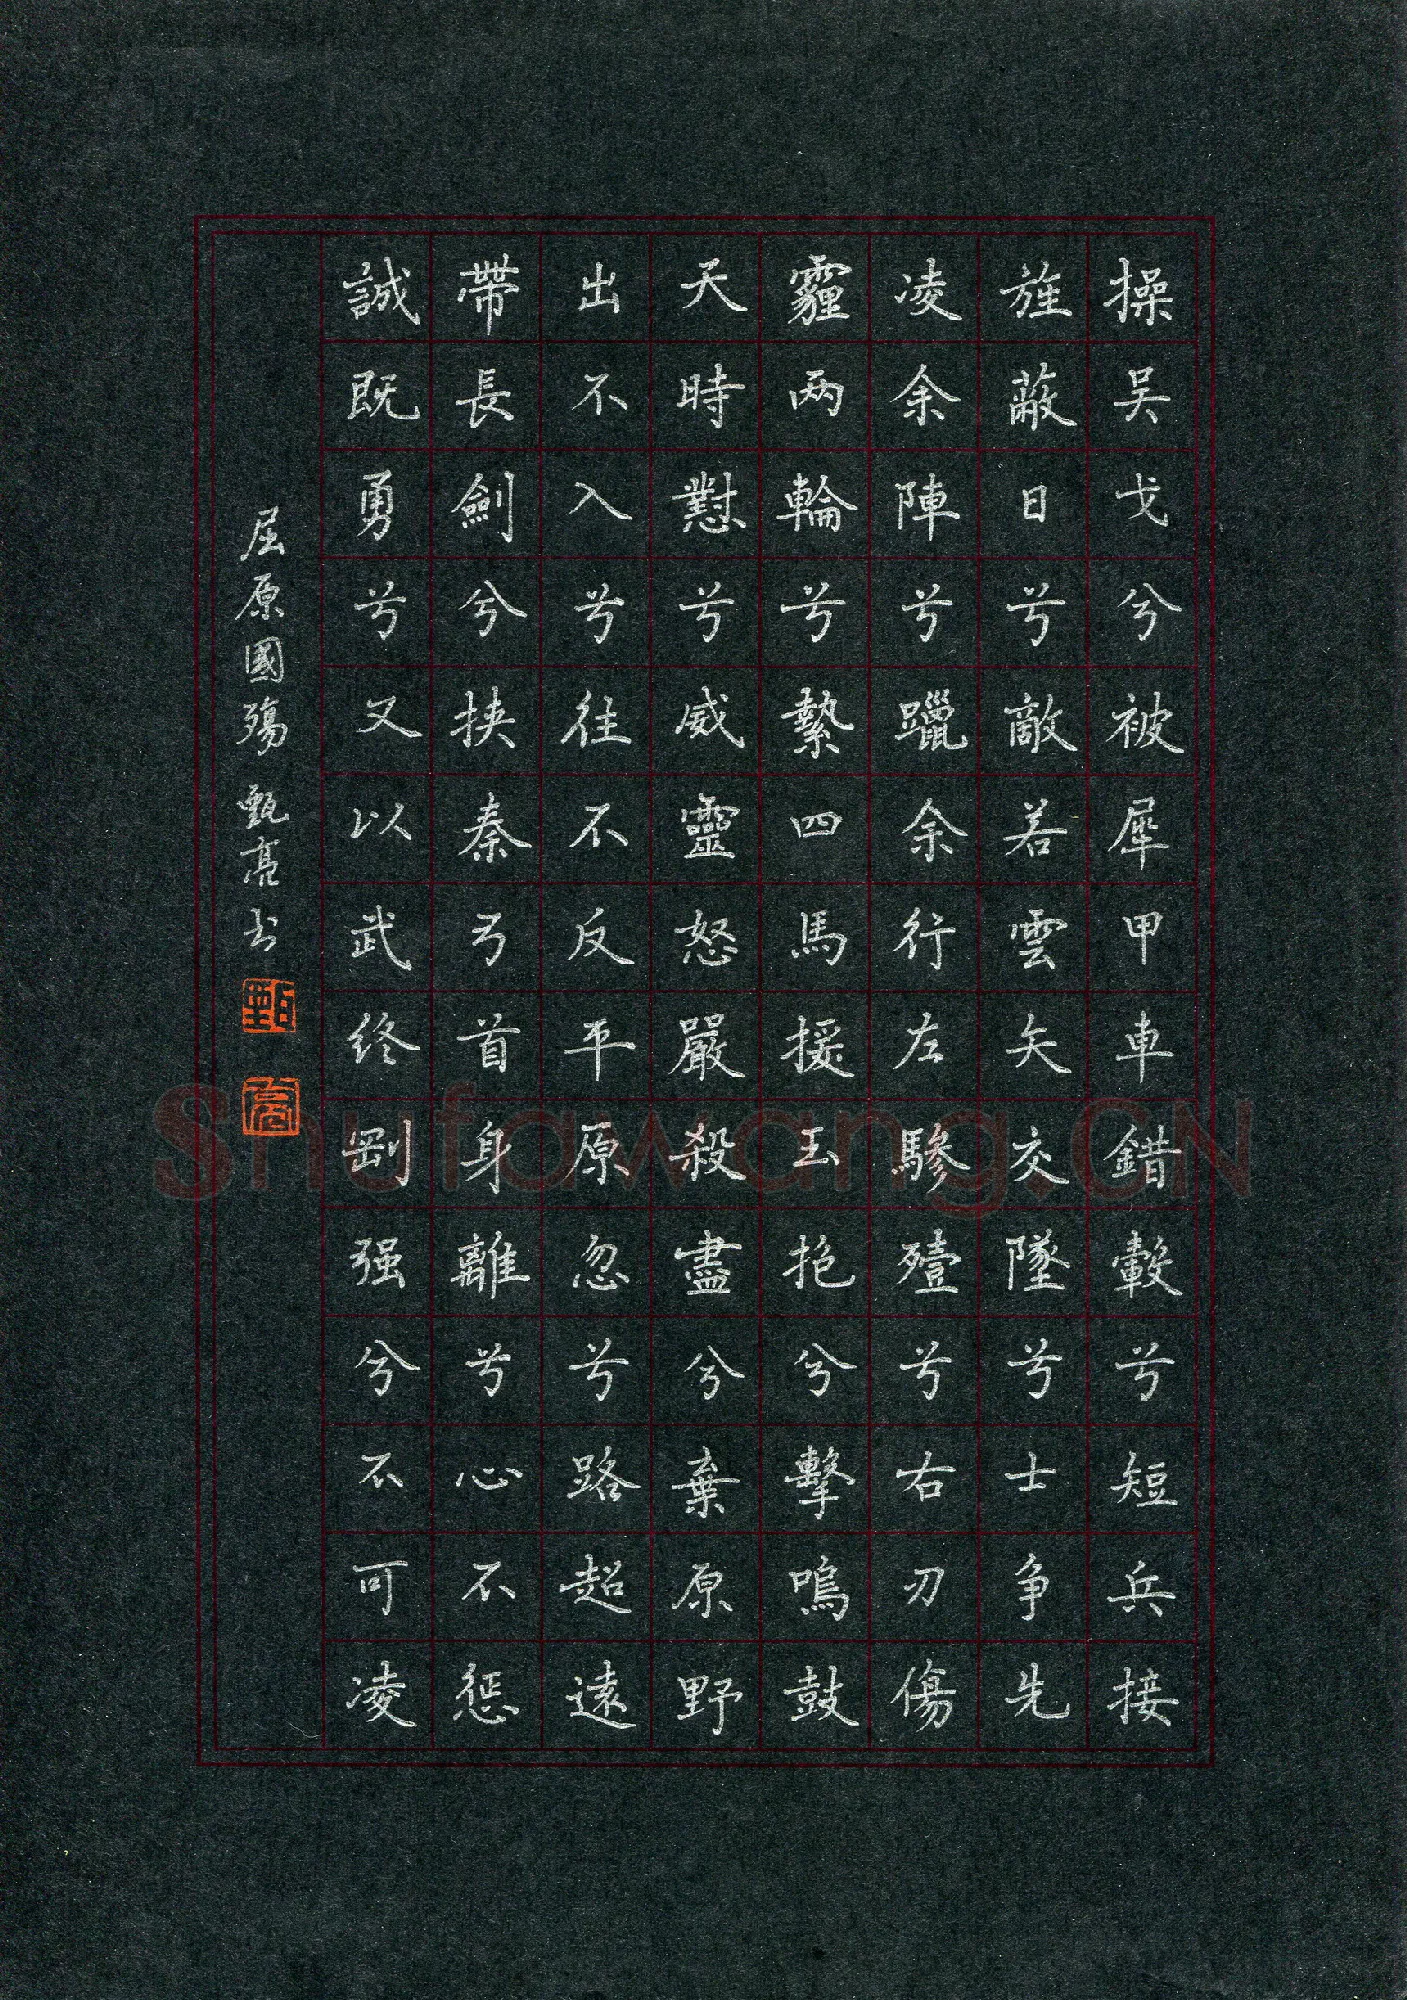 操吴戈兮被犀甲車錯轂兮短兵接
旌蔽日兮敵若雲矢交墜兮士争先
凌余陣兮躐余行左驂殪兮右刃傷
霾兩輪兮縶四馬援玉枹兮擊鳴鼓
天時懟兮威靈怒嚴殺盡兮棄原野
出不入兮往不反平原忽兮路超遠
帶長劍兮挟秦弓首身離兮心不惩
誠既勇兮又以武终剛强兮不可凌
屈原國殤 甄亮书
甄
亮
Shufawang.CN